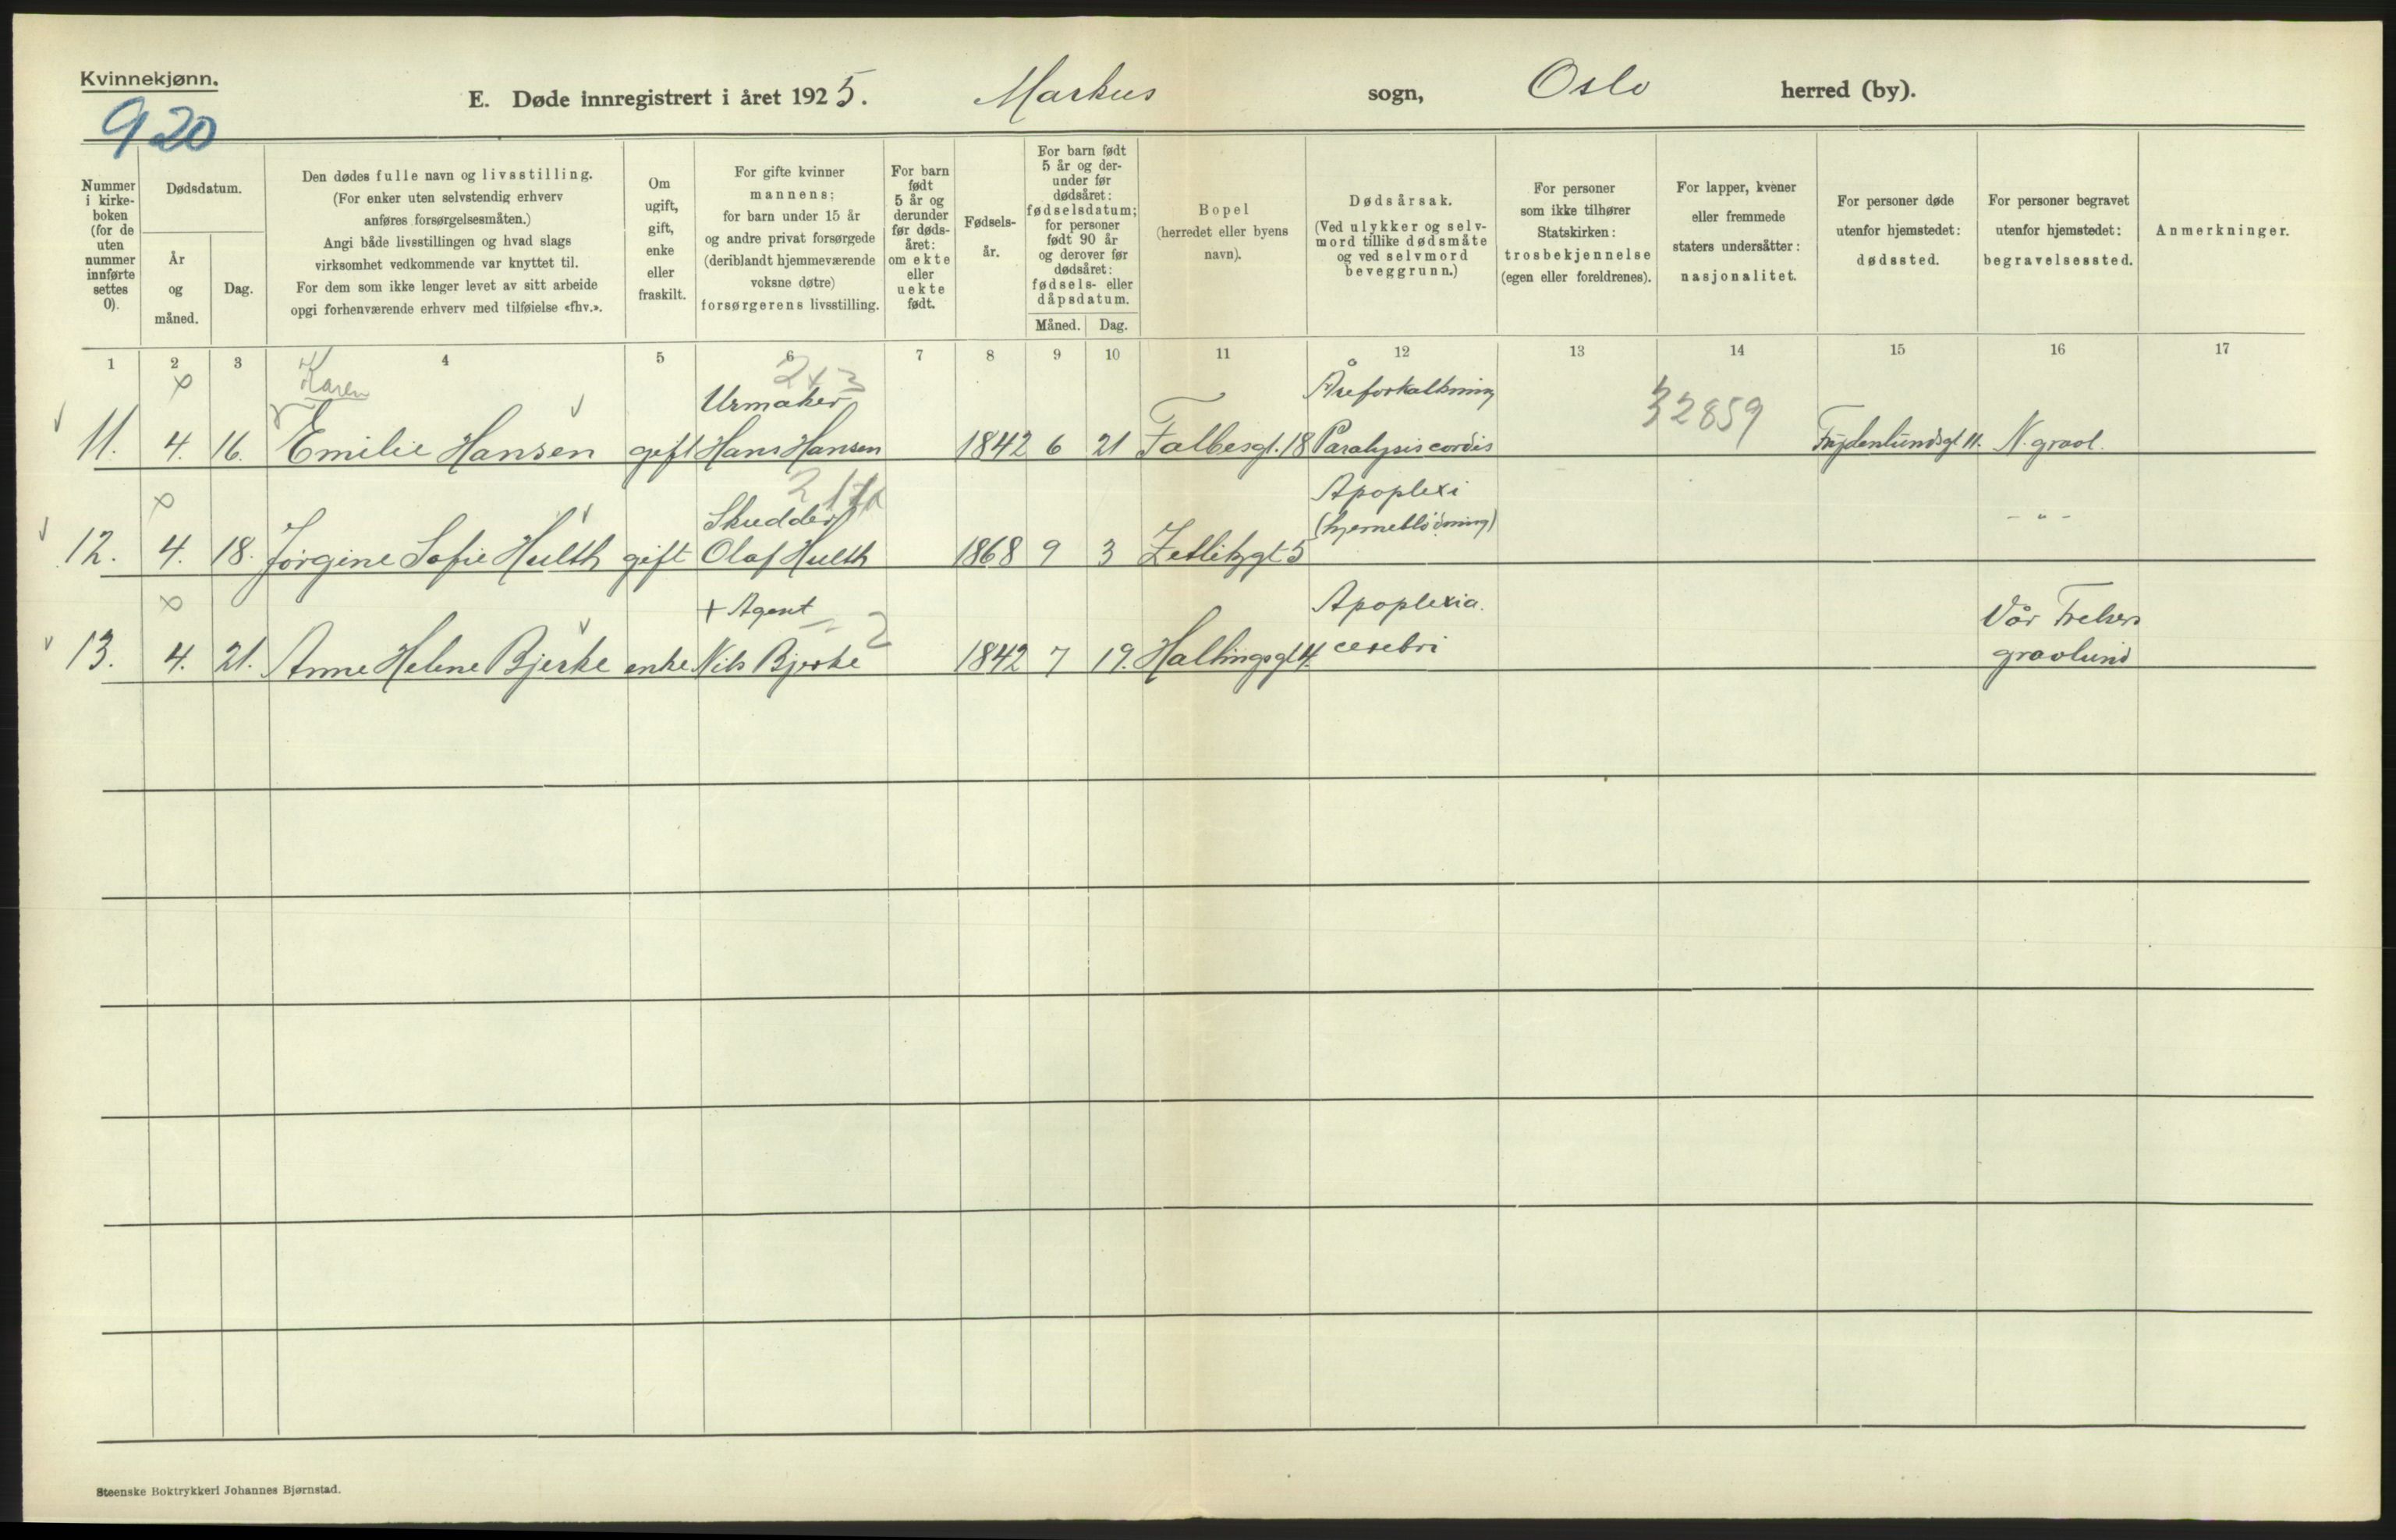 Kvinnekjønn.
920
E. Døde innregistrert i året 1925. Markus sogn, Oslo herred (by).
Nummer i kirke-boken (for de uten nummer innførte settes 0).
Dødsdatum.
År og måned.
Dag.
Den dødes fulle navn og livsstilling.
(For enker uten selvstendig erhverv
anføres forsørgelsesmåten.)
Angi både livsstillingen og hvad slags
virksomhet vedkommende var knyttet til.
For dem som ikke lenger levet av sitt arbeide
opgi forhenværende erhverv med tilføielse «fhv.».
Om
ugift,
gift,
enke
eller
fraskilt.
For gifte kvinner
mannens;
for barn under 15 år
og andre privat forsørgede
(deriblandt hjemmeværende
voksne døtre)
forsørgerens livsstilling.
For barn
født
5 år og
derunder
før døds-
året:
om ekte
eller
uekte
født.
Fødsels-
år.
For barn født
5 år og der-
under før
dødsåret:
fødselsdatum;
for personer
født 90 år
og derover før
dødsåret:
fødsels- eller
dåpsdatum.
Måned. Dag.
Bopel
(herredet eller byens
navn).
Dødsårsak.
(Ved ulykker og selv-
mord tillike dødsmåte
og ved selvmord
beveggrunn.)
For personer
som ikke tilhører
Statskirken:
trosbekjennelse
(egen eller foreldrenes).
For lapper, kvener
eller fremmede
staters undersåtter:
nasjonalitet.
For personer døde
utenfor hjemstedet:
dødssted.
For personer begravet
utenfor hjemstedet:
begravelsessted.
Anmerkninger.
1 2 3 4 5 6 7 8 9 10 11 12 13 14 15 16 17
Karen Urmaker 2x3 Åreforkalkning 32859
11. 4. 16. Emilie Hansen gift Hans Hansen 1842 6 21 Falbesgt. 18 Paralysis cordis Frydenlundsgt 11. N. gravl.
Skredder Apoplexi
(hjerneblødning) - " -
12. 4. 18. Jørgine Sofie Hulth gift Olaf Hulth 1868 9 3 Zetlitzgt 5
+ Agent 2 Apoplexia. Vår Frelsers
13. 4. 21. Anne Helene Bjerke enke Nils Bjerke 1842 7 19. Hallingsgt 4. cerebri gravlund
Steenske Boktrykkeri Johannes Bjørnstad.